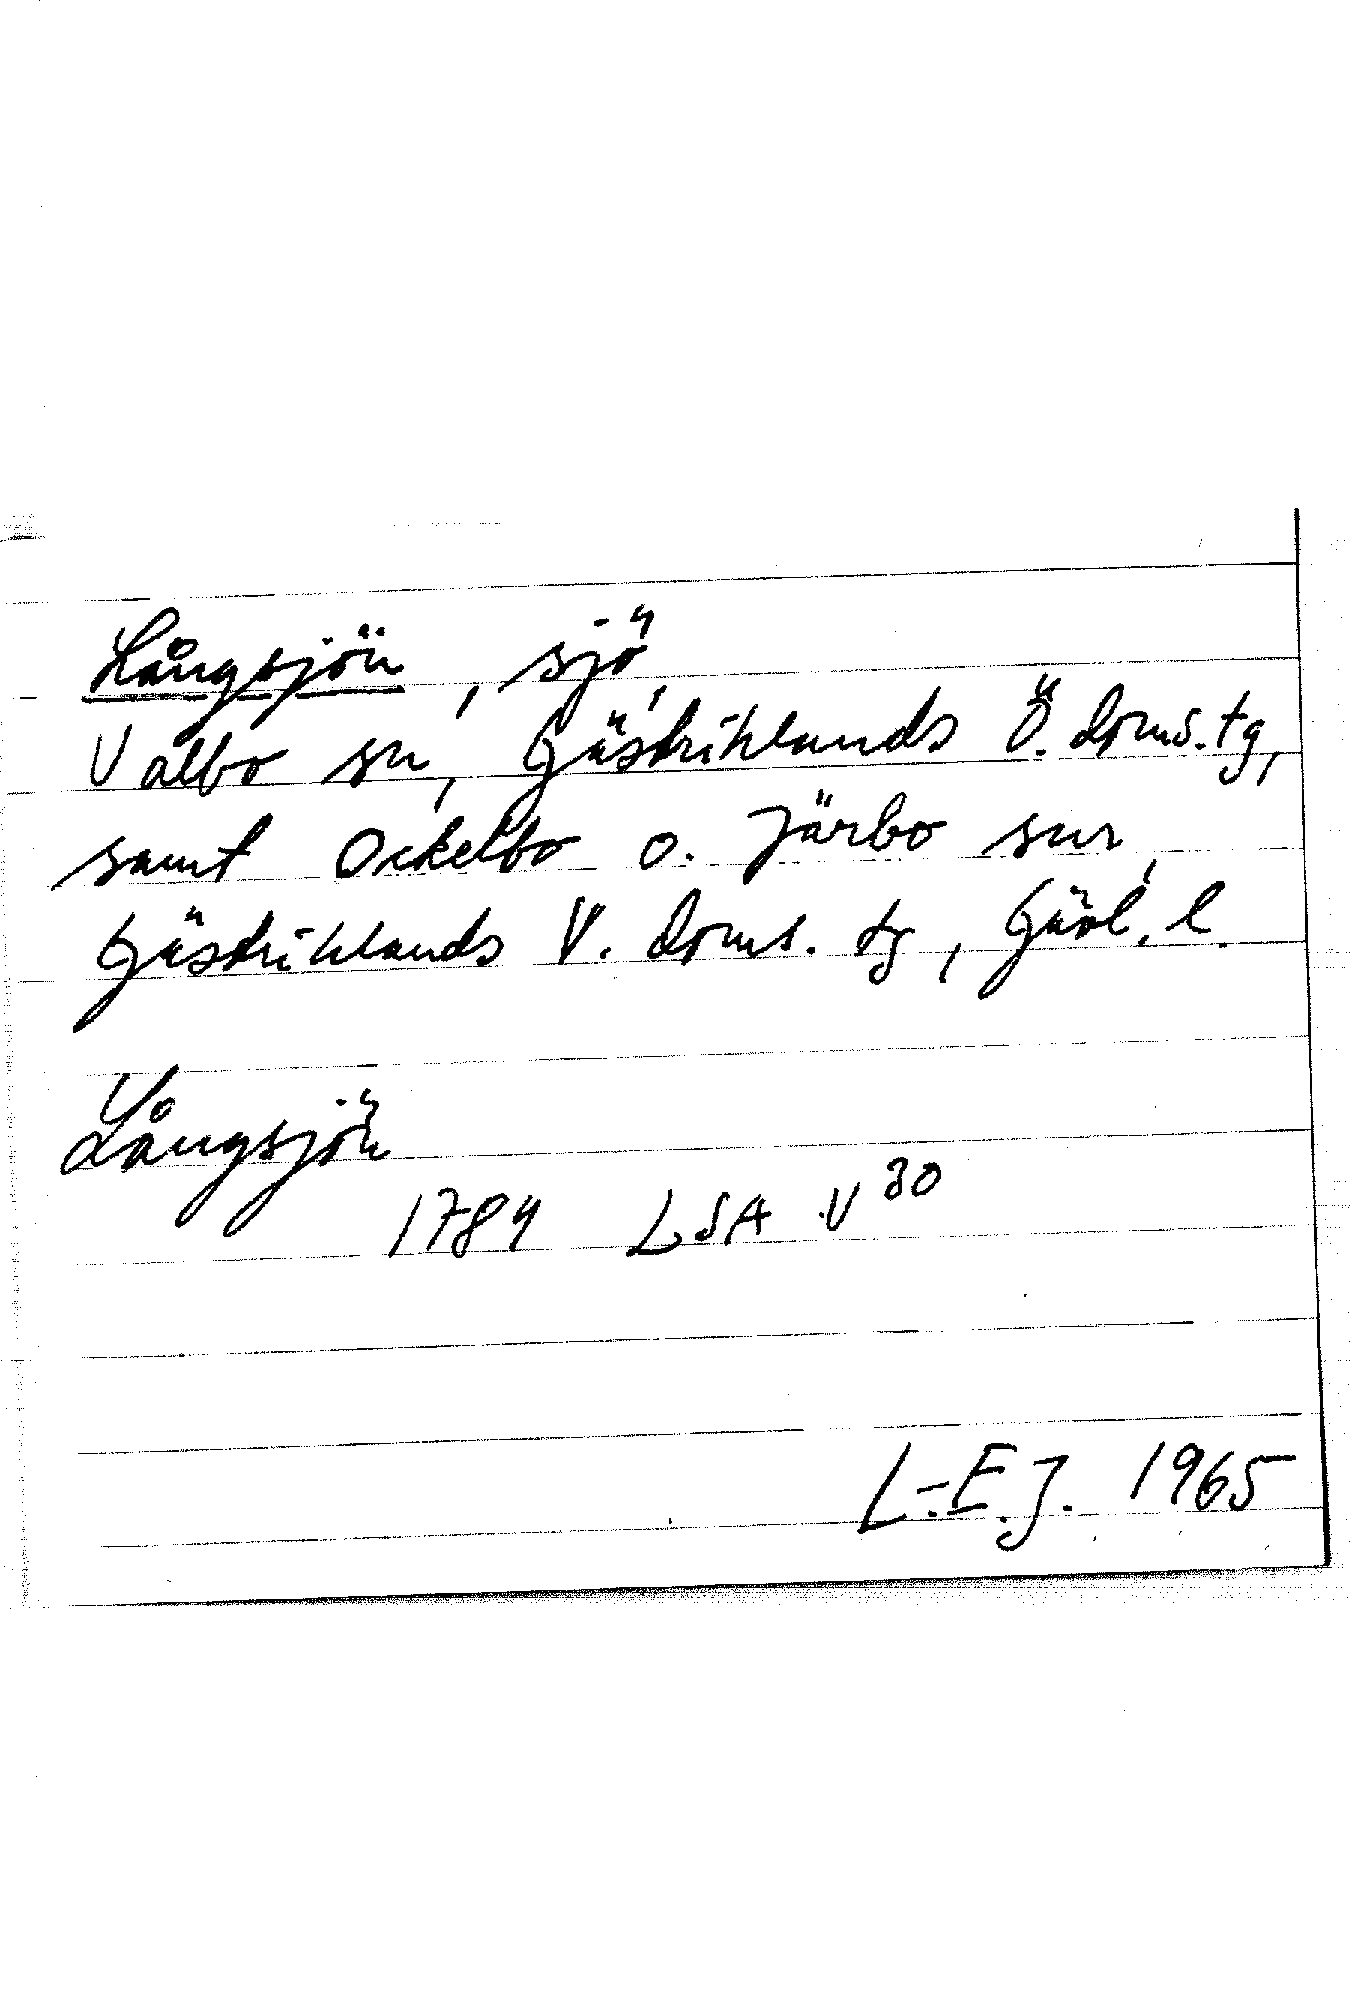 Långsjön, sjö,
Valbo sn, Gästriklands Ö. doms. tg,
samt Ockelbo o. Järbo snr,
Gästriklands V. doms. tg, Gävl. l.
Långsjön
1784 LSA V 30
L.-E.J. 1965